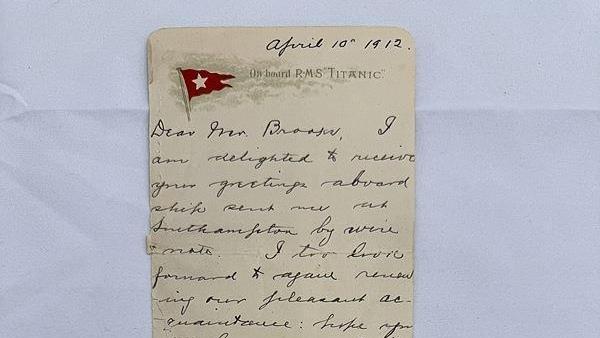 April 10th 1912.
On board R.M.S "TITANIC".
Dear Mr. I
am delighted to receive
your greetings aboard
ship sent me at
Southampton by wire
& note. I too look
forward to again renew
-ing our pleasant ac-
quaintance: hope you